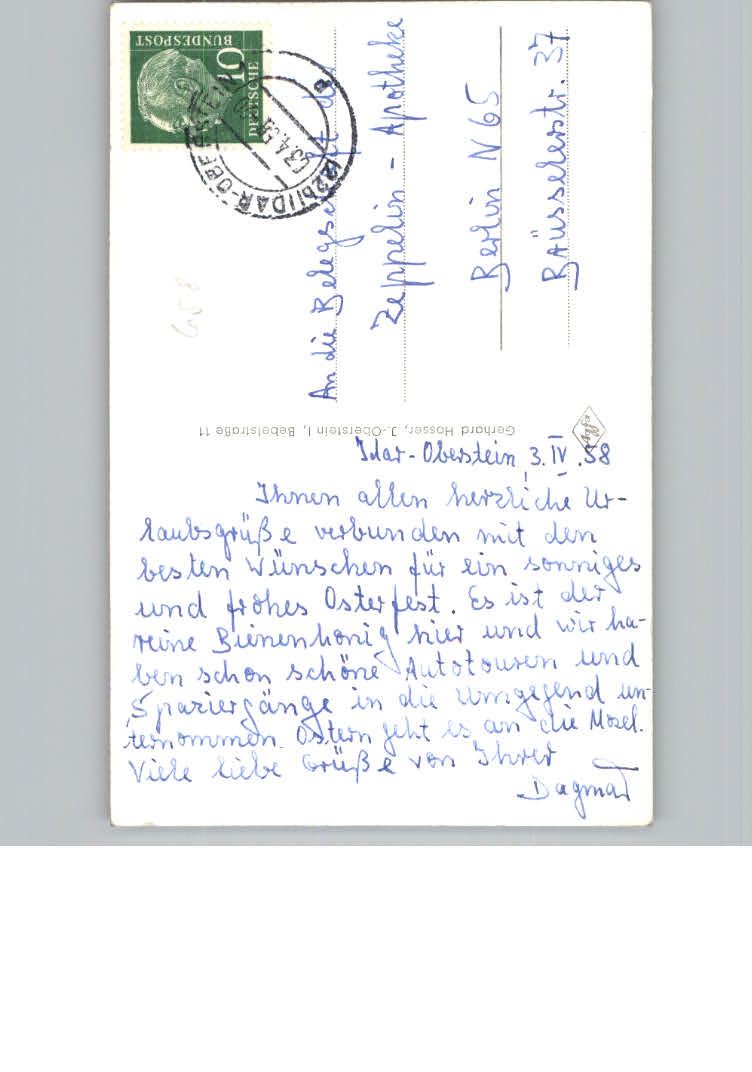 DEUTSCHE
BUNDESPOST
10
(22b) IDAR-OBERSTEIN
An die Belegschaft der
Zeppelin - Apotheke
Berlin N 65
Bäusselerstr. 37
Gerhard Hosser, J.-Oberstein I, Bebelstraße 11
Agfa
Idar-Oberstein, 3. IV. 58
Ihnen allen herzliche Ur-
laubsgrüße verbunden mit den
besten Wünschen für ein sonniges
und frohes Osterfest. Es ist der
reine Bienenhonig hier und wir ha-
ben schon schöne Autotouren und
Spaziergänge in die Umgegend un-
ternommen. Ostern geht es an die Mosel.
Viele liebe Grüße von Ihrer
Dagmar